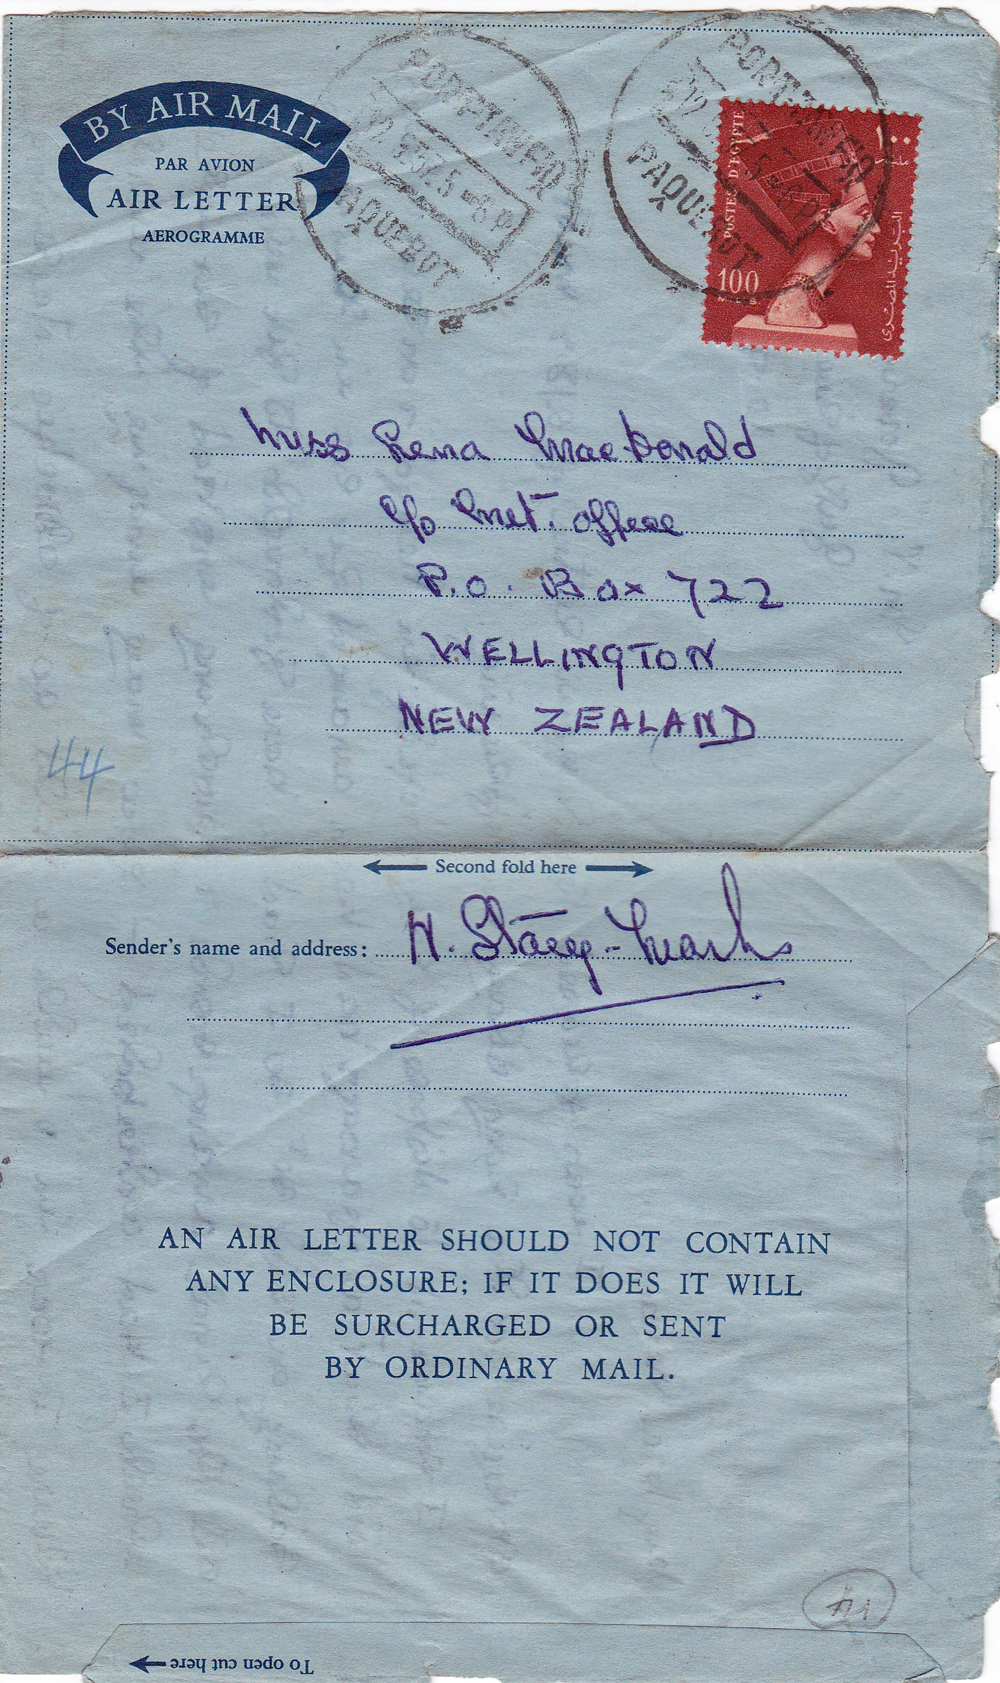 BY AIR MAIL
PAR AVION
AIR LETTER
AEROGRAMME
PORT TAWFIQ
PAQUEBOT
PORT TAWFIQ
PAQUEBOT
POSTES D'EGYPTE
البريد المصرى
100
Miss Lena MacDonald
c/o Met. Office
P.O. Box 722
WELLINGTON
NEW ZEALAND
44
Second fold here
Sender's name and address: H. Stacey-Marks
AN AIR LETTER SHOULD NOT CONTAIN
ANY ENCLOSURE; IF IT DOES IT WILL
BE SURCHARGED OR SENT
BY ORDINARY MAIL.
To open cut here